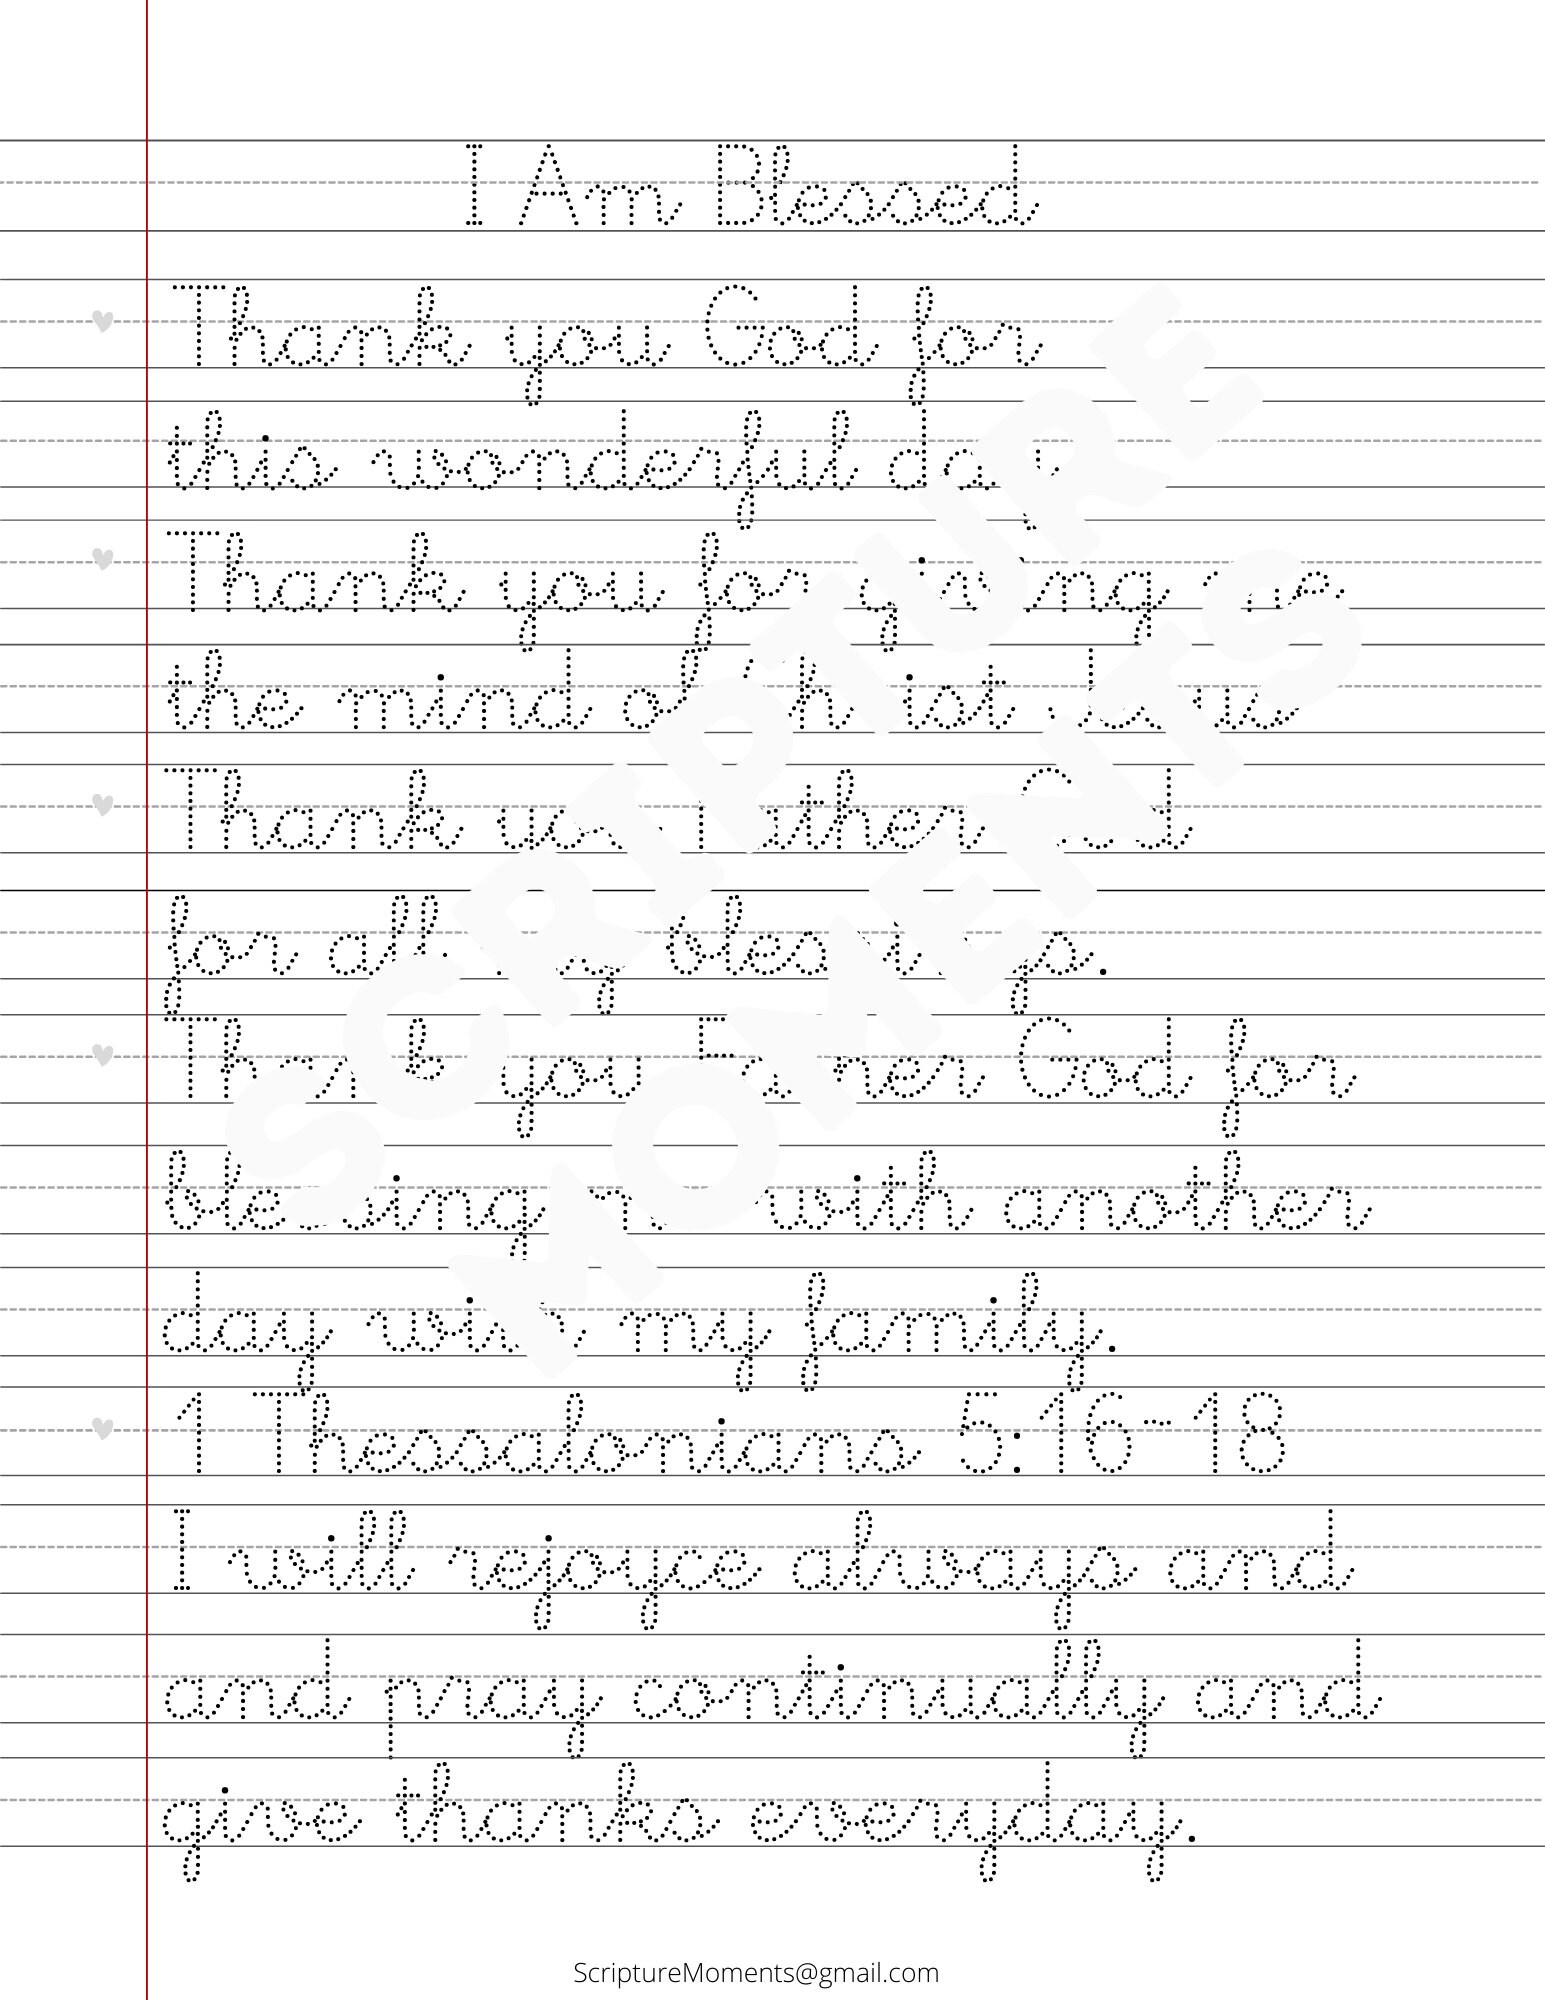 I Am Blessed
Thank you God for
this wonderful day
Thank you for giving me
the mind of Christ Jesus
Thank you Father God
for all my blessings.
Thank you Father God for
blessing me with another
day with my family.
1 Thessalonians 5:16-18
I will rejoyce always and
and pray continually and
give thanks everyday.
SCRIPTURE
MOMENTS
ScriptureMoments@gmail.com